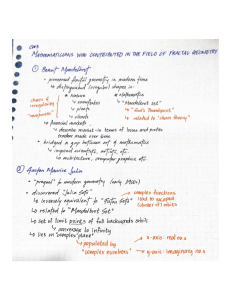 MATHEMATICIANS WHO CONTRIBUTED IN THE FIELD OF FRACTAL GEOMETRY
① Benoit Mandelbrot
- pioneered fractal geometry in modern form
↳ distinguished (irregular) shapes in:
* nature
* mathematics
chaos & irregularity
"roughness"
↳ coastlines
↳ plants
↳ clouds
"Mandelbrot set"
↳ "God's Thumbprint"
↳ related to "chaos theory"
* financial markets
↳ describe market in terms of losses and profits
traders made over time
- bridged a gap in/out of mathematics
↳ inspired scientists, artists, etc.
↳ architecture, computer graphics etc.
② Gaston Maurice Julia
- "prequel" to modern geometry (early 1900s)
- discovered "Julia Sets"
↳ inversely equivalent to "Fatou Sets"
↳ related to "Mandelbrot Set"
↳ set of limit points of full backwards orbit
↳ lies on "complex plane"
complex functions
↳ populated by "complex numbers"
x-axis - real no.s
y-axis - imaginary no.s